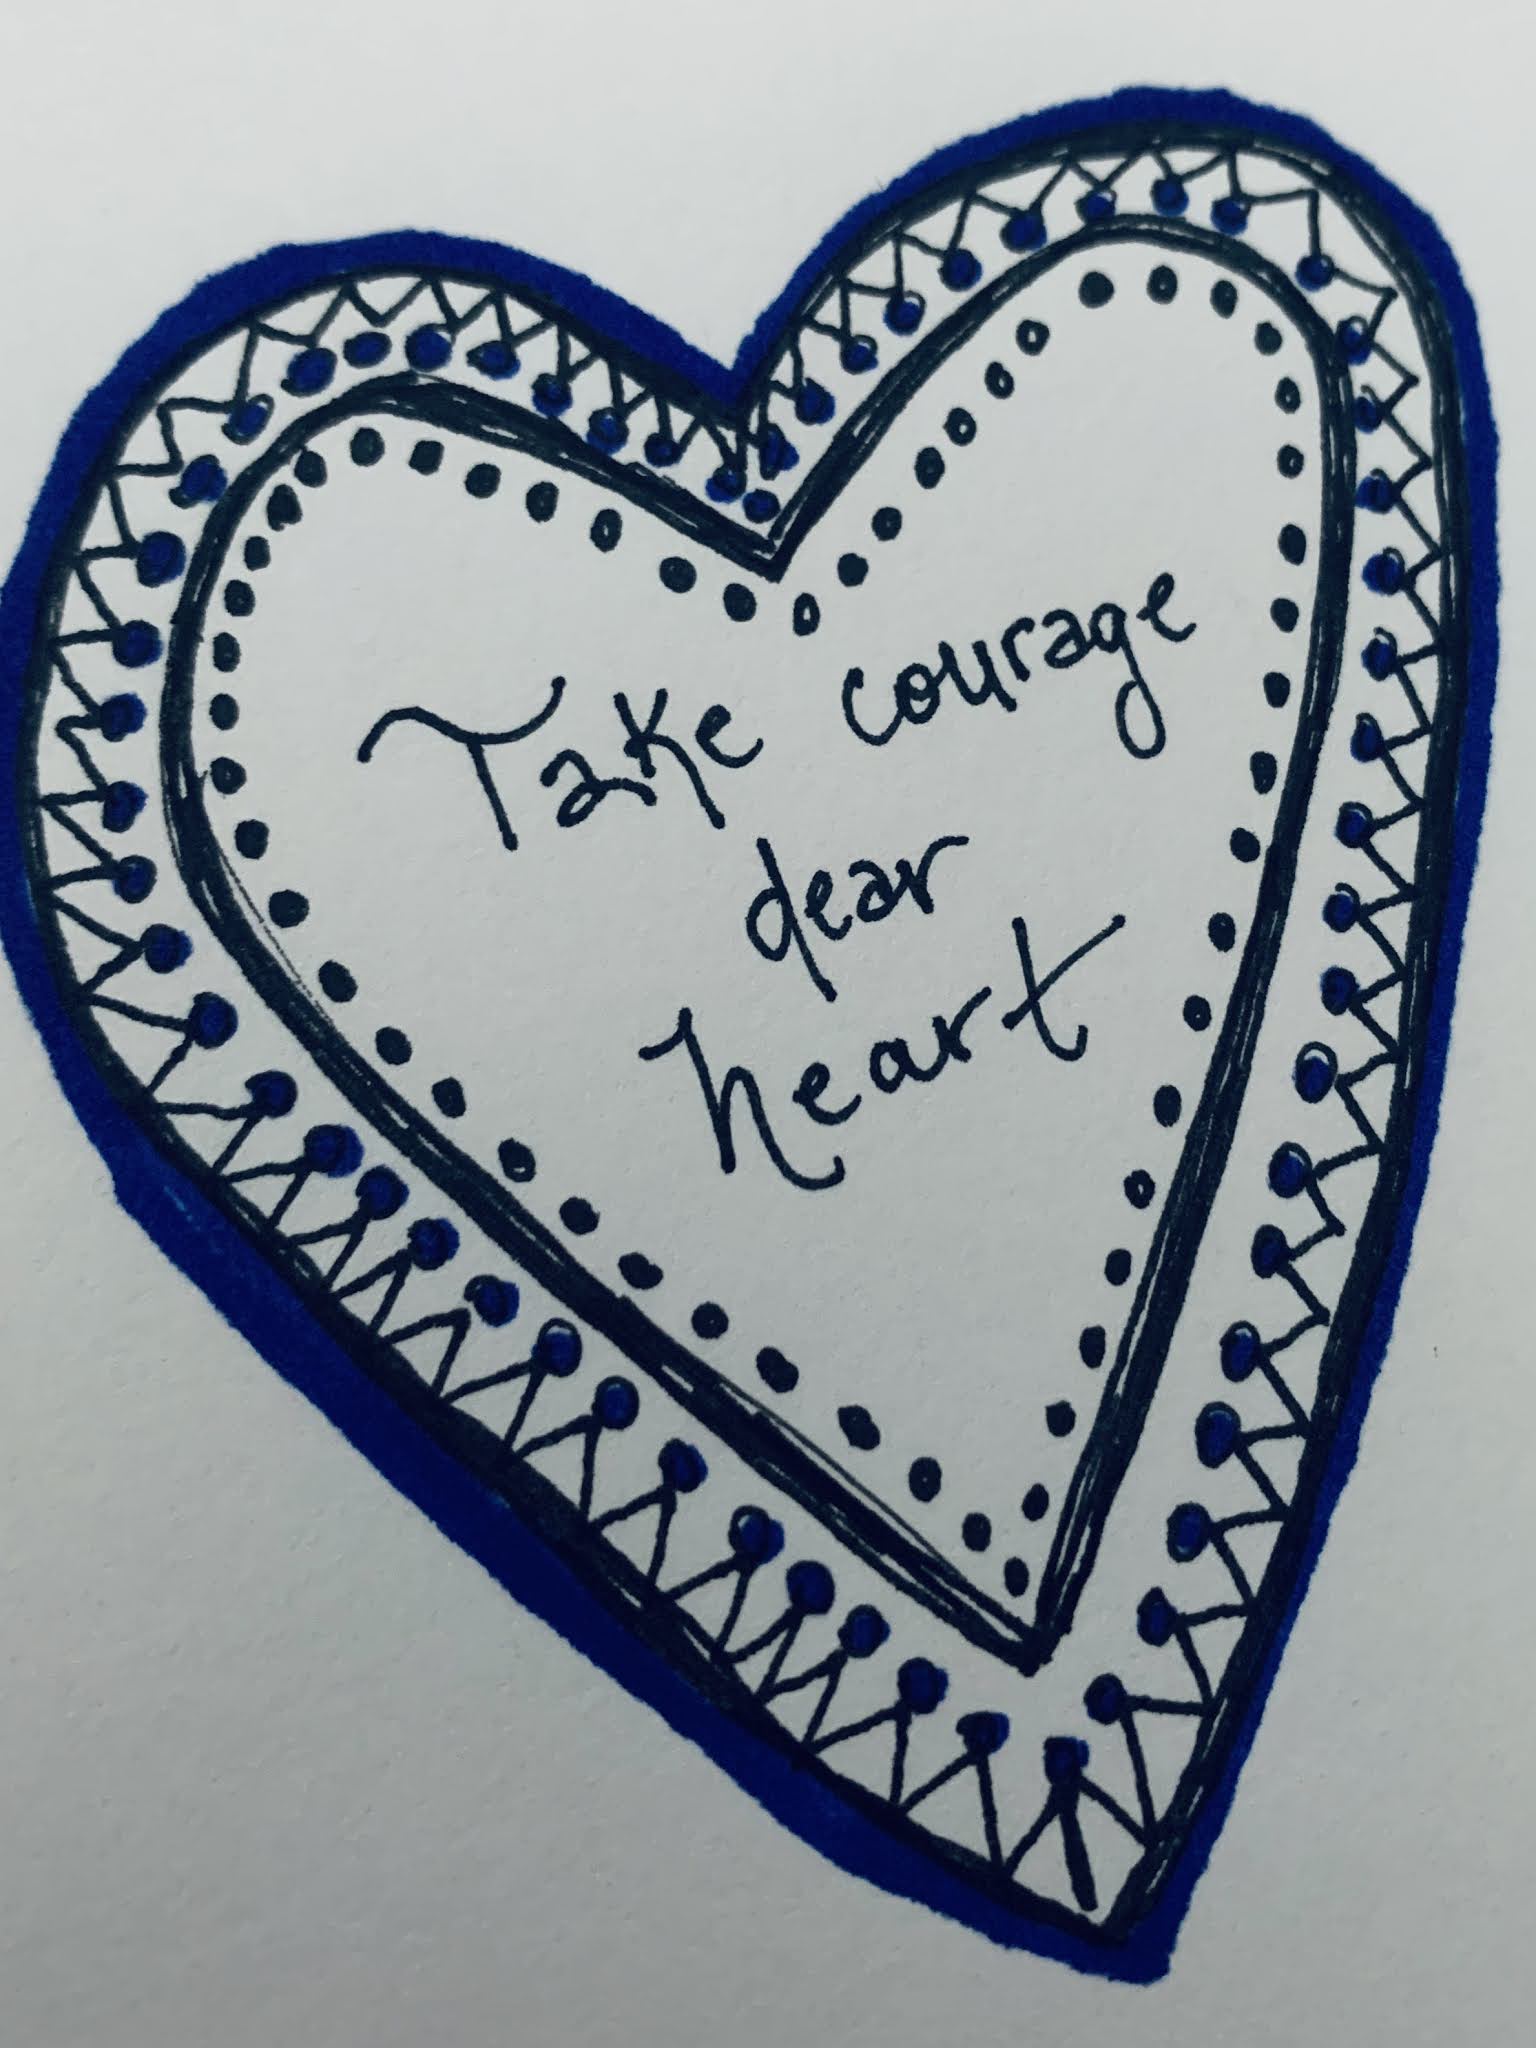 Take courage
dear
heart